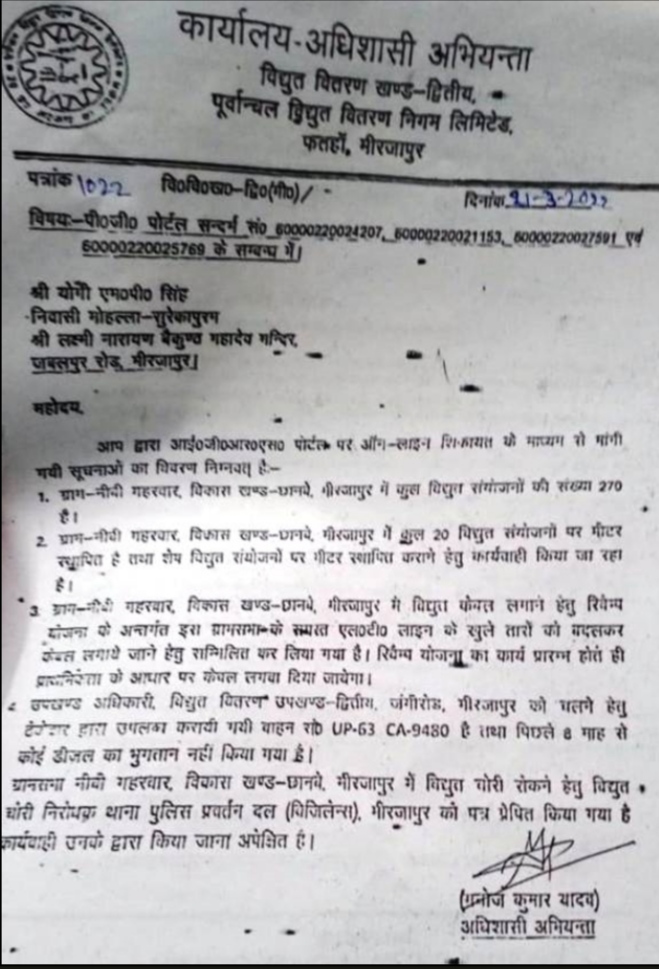 कार्यालय-अधिशासी अभियन्ता
विद्युत वितरण खण्ड-द्वितीय,
पूर्वान्चल विद्युत वितरण निगम लिमिटेड,
फतहाँ, मीरजापुर
पत्रांक 1022 वि०वि०ख०-द्वि०(मी०)/ -
दिनांक 21-3-2022
विषयः-पी०जी० पोर्टल सन्दर्भ सं० 60000220024207, 60000220021153, 60000220027591 एवं
60000220025769 के सम्बन्ध में।
श्री योगी एम०पी० सिंह
निवासी मोहल्ला-सुरेकापुरम
श्री लक्ष्मी नारायण बैकुण्ठ महादेव मन्दिर,
जबलपुर रोड, मीरजापुर।
महोदय,
आप द्वारा आई०जी०आर०एस० पोर्टल पर ऑन-लाइन शिकायत के माध्यम से मांगी
गयी सूचनाओं का विवरण निम्नवत् है:-
1. ग्राम-नीवी गहरवार, विकास खण्ड-छानवे, मीरजापुर में कुल विद्युत संयोजनों की संख्या 270
है।
2. ग्राम-नीवी गहरवार, विकास खण्ड-छानवे, मीरजापुर में कुल 20 विद्युत संयोजनों पर मीटर
स्थापित है तथा शेष विद्युत संयोजनों पर मीटर स्थापित कराने हेतु कार्यवाही किया जा रहा
है।
3. ग्राम-नीवी गहरवार, विकास खण्ड-छानवे, मीरजापुर में विद्युत केबल लगाने हेतु रिवैम्प
योजना के अन्तर्गत इस ग्रामसभा के समस्त एल०टी० लाइन के खुले तारों को बदलकर
केबल लगाये जाने हेतु सम्मिलित कर लिया गया है। रिवैम्प योजना का कार्य प्रारम्भ होते ही
प्राथमिकता के आधार पर केबल लगवा दिया जायेगा।
4. उपखण्ड अधिकारी, विद्युत वितरण उपखण्ड-द्वितीय, जंगीरोड, मीरजापुर को चलने हेतु
टेन्डर द्वारा उपलब्ध करायी गयी वाहन सं० UP-63 CA-9480 है तथा पिछले 6 माह से
कोई डीजल का भुगतान नहीं किया गया है।
ग्रामसभा नीवी गहरवार, विकास खण्ड-छानवे, मीरजापुर में विद्युत चोरी रोकने हेतु विद्युत
चोरी निरोधक थाना पुलिस प्रवर्तन दल (विजिलेन्स), मीरजापुर को पत्र प्रेषित किया गया है
कार्यवाही उनके द्वारा किया जाना अपेक्षित है।
(मनोज कुमार यादव)
अधिशासी अभियन्ता